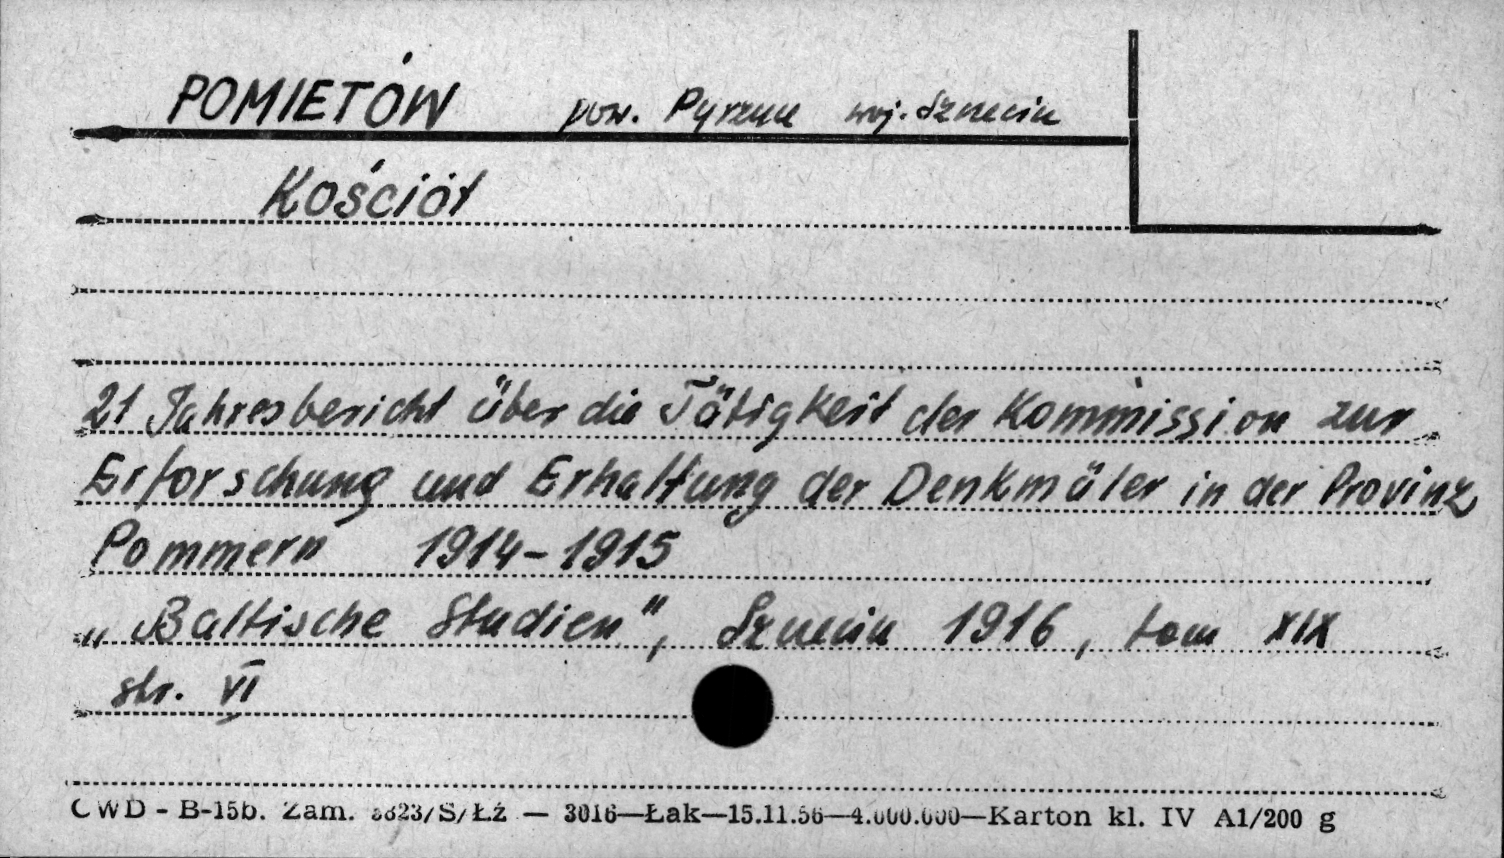 POMIETÓW pow. Pyrzyce woj. Szczecin
Kościół
21 Jahresbericht über die Tätigkeit der Kommission zur
Erforschung und Erhaltung der Denkmäler in der Provinz
Pommern 1914-1915
„Baltische Studien", Szczecin 1916, tom XIX
str. VI
CWD - B-15b. Zam. 8823/S/Łż — 3016—Łak—15.11.56—4.000.000—Karton kl. IV A1/200 g